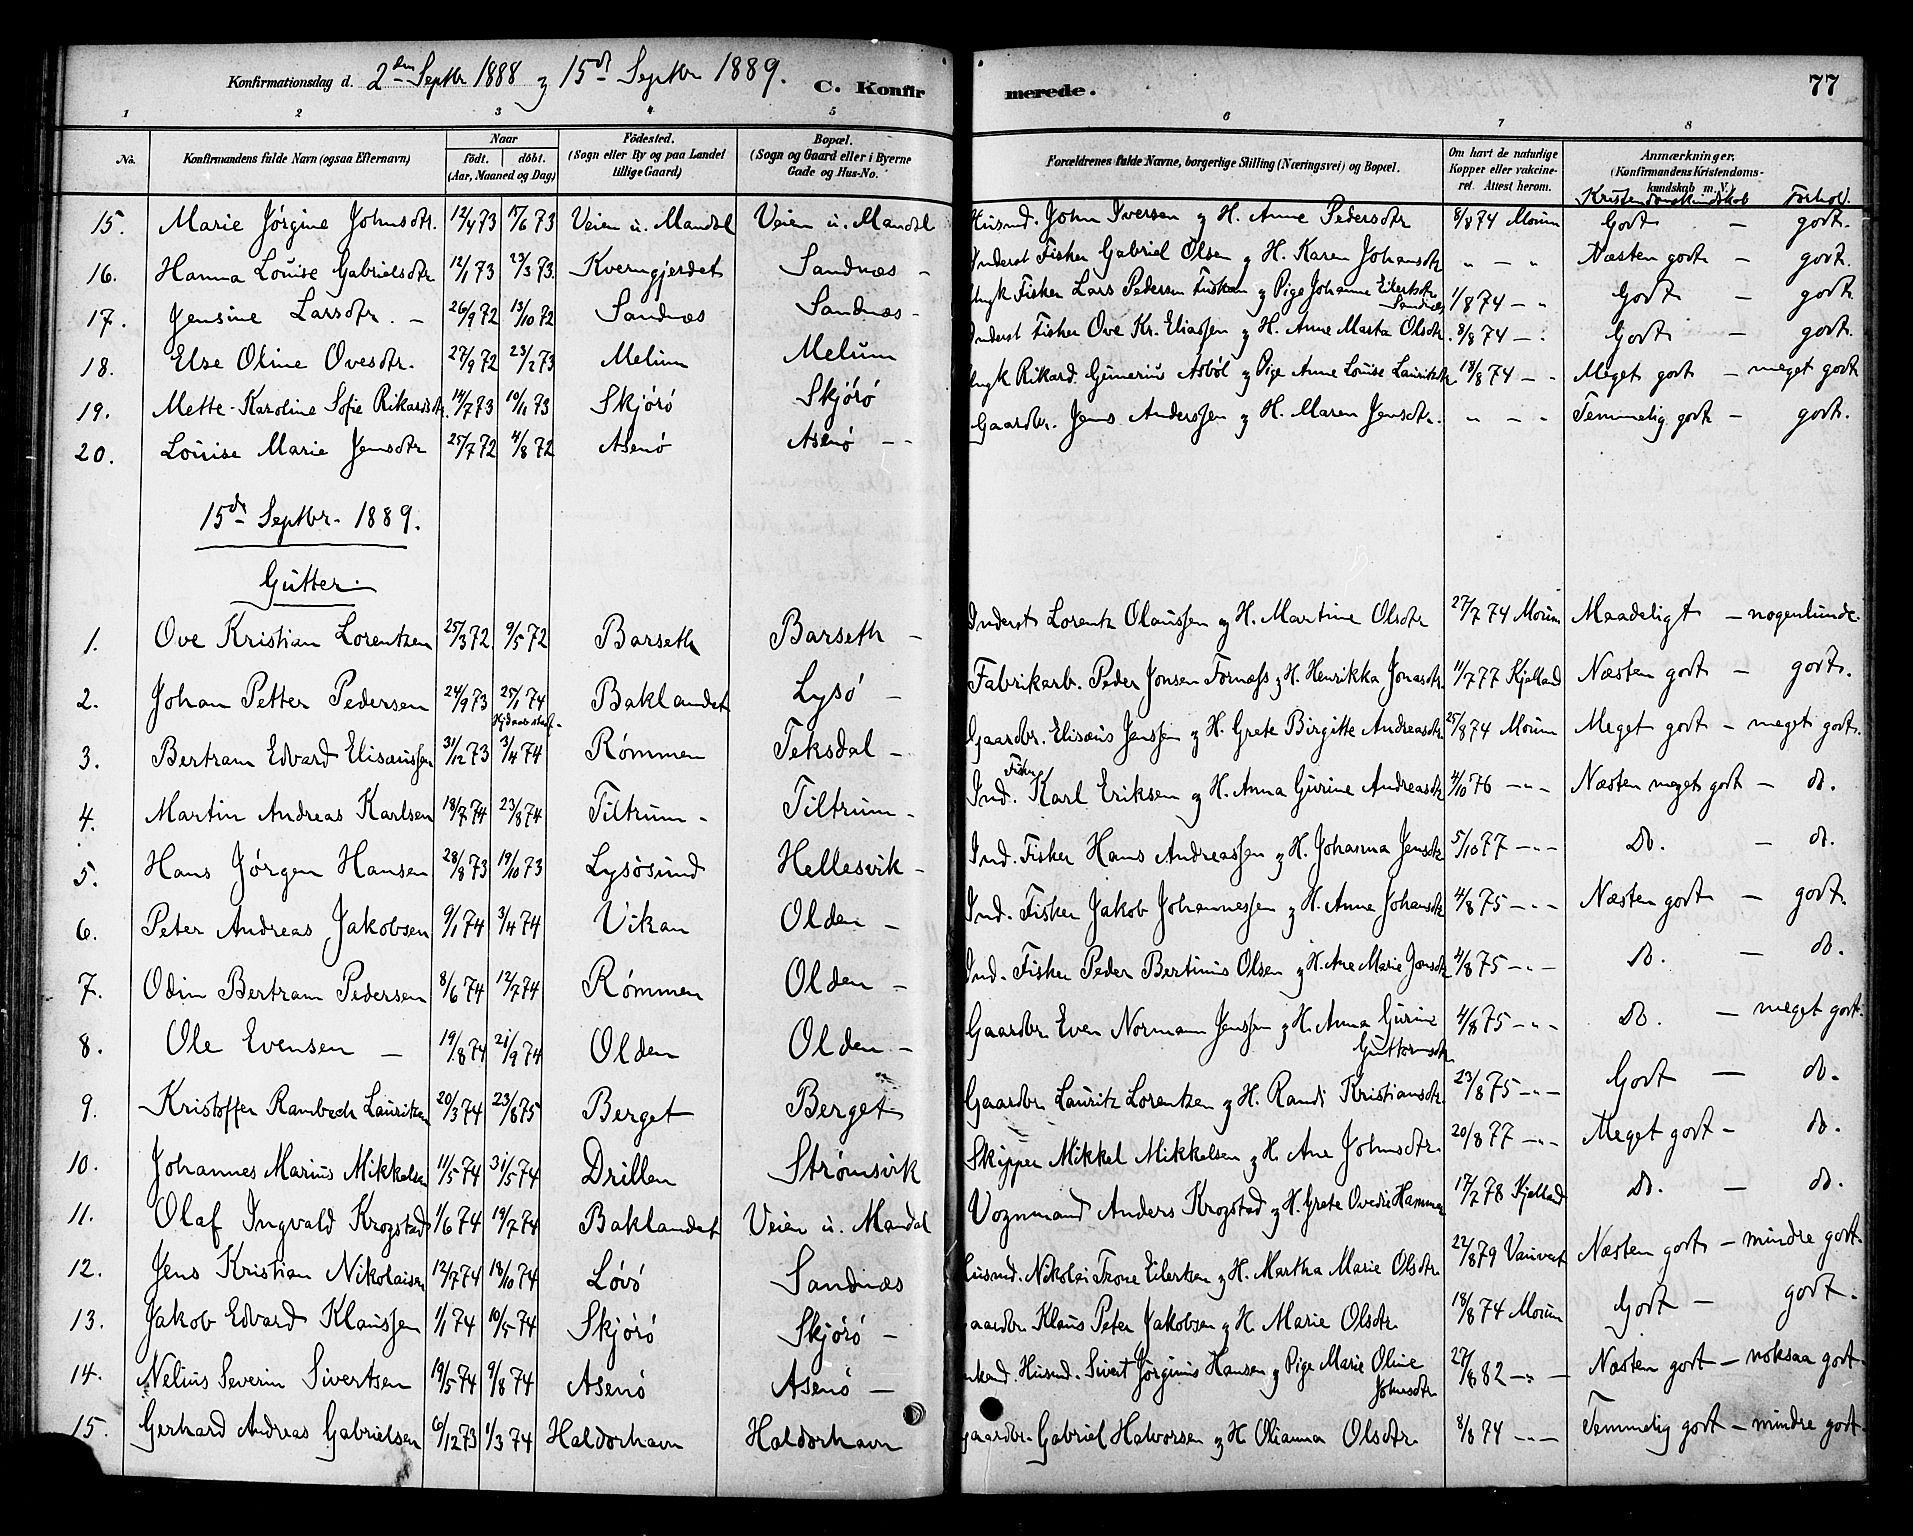 Konfirmationsdag d. 2den Septbr 1888 og 15de Septbr 1889. C. Konfirmerede. 77
1 2 3 4 5 6 7 8
No. Konfirmandens fulde Navn (ogsaa Efternavn) Naar födt. döbt. (Aar, Maaned og Dag) Födested. (Sogn eller By og paa Landet tillige Gaard) Bopæl. (Sogn og Gaard eller i Byerne Gade og Hus-No. Forældrenes fulde Navne, borgerlige Stilling (Næringsvei) og Bopæl. Om havt de naturlige Kopper eller vakcineret. Attest herom. Anmærkninger. (Konfirmandens Kristendomskundskab m. V.)
Kristendomskundskab Forhold.
15. Marie Jörgine Johnsdtr. 12/4 73 17/6 73 Veien u. Mandal Veien u. Mandal Husmd. John Iversen og H. Anne Pedersdtr 8/8 74 Morum Godt – godt.
16. Hanna Louise Gabrielsdtr 12/1 73 23/3 73. Kverngjerdet Sandnæs – Inderst Fisker Gabriel Olsen og H. Karen Johansdtr " – " Næsten godt – godt.
17. Jensine Larsdtr. – 26/9 72 13/10 72 Sandnæs Sandnæs – Ungk Fisker Lars Pedersen og Pige Johanne Eilertsdtr Sandnæs 1/8 74 – " Godt – godt
18. Else Oline Ovesdtr. 27/9 72 23/2 73 Melum Melum Inderst Fisker Ove Kr. Eliassen og H. Anne Marta Olsdtr. 8/8 74 – " Godt godt.
19. Mette Karoline Sofie Rikardsdtr. 14/7 73 10/11 73 Skjörö Skjörö Ungk Rikard Gunerius Asböl og Pige Anne Louise Lauritzdtr 18/8 74 – " Meget godt – meget godt
20. Louise Marie Jensdtr 25/7 72 4/8 72 Asenö Asenö – – Gaardbr. Jens Anderssen og H. Maren Jensdtr. " – " Temmelig godt – godt.
15de Septbr. 1889.
Gutter.
1. Ove Kristian Lorentzen 25/3 72 9/5 72 Barseth Barseth – Inderst Lorentz Olaussen og H. Martine Olsdtr 27/7 74 Morum Maadeligt – nogenlunde.
2. Johan Petter Pedersen 24/9 73 25/1 74 Baklandet Lysö – Fabrikarb. Peder Jonsen Fornæss og H. Henrikka Jonasdtr. 11/7 77 Kjelland Næsten godt – godt.
3. Bertram Edvard Elisæussen 31/12 73 3/4 74 Römmen Teksdal – Gaardbr. Elisæus Jenssen og H. Grete Birgitte Andreasdtr 25/8 74 Morum Meget godt – meget godt.
4. Martin Andreas Karlsen 18/7 74 23/8 74 Tiltrum – Tiltrum – Ind. Fisker Karl Eriksen og H. Anna Gurine Andreasdtr 4/10 76 – " – Næsten meget godt – do.
5. Hans Jörgen Hansen 28/8 73 19/10 73 Lysösund Hellesvik – Ind. Fisker Hans Andreassen og H. Johanna Jensdtr 5/10 77 – " – Do. – do.
6. Peter Andreas Jakobsen 9/1 74 3/4 74 Vikan Olden – Ind. Fisker Jakob Johannessen og H. Anne Johansdtr 4/8 75 – " – Næsten godt – godt.
7. Odin Bertram Pedersen 8/6 74 12/7 74 Römmen Olden – Ind. Fisker Peder Bertinus Olsen og H. Ane Marie Jonsdtr 4/8 75 – " – Do. – do.
8. Ole Evensen – 19/8 74 21/9 74 Olden Olden – Gaardbr. Even Normann Jenssen og H. Anna Gurine Guttormsdtr. 4/8 75 – " – Do. – meget godt.
9. Kristoffer Rambech Lauritzen 20/3 74 23/8 75 Berget Berget Gaardbr. Lauritz Lorentzen og H. Randi Kristiansdtr. 23/8 75 – " – Godt – do.
10. Johannes Marius Mikkelsen 11/5 74 31/5 74 Drillen Strömsvik Skipper Mikkel Mikkelsen og H. Ane Johnsdtr. 20/8 77 – " – Meget godt – do.
11. Olaf Ingvald Krogstad 1/6 74 19/7 74 Baklandet Veien u. Mandal Vognmand Anders Krogstad og H. Grete Ovedie Hammer 17/7 78 Kjelland Do. – do.
12. Jens Kristian Nikolaisen 12/7 74 18/10 74 Lövö Sandnæs Husmd. Nikolai Trone Eilertsen og H. Martha Marie Olsdtr. 22/8 79 Næsten godt – mindre godt.
13. Jakob Edvard Klaussen 1/1 74 10/5 74 Skjörö Skjörö – Gaardbr. Klaus Peter Jakobsen og H. Marie Olsdtr. 18/8 74 Morum Godt – godt.
14. Nelius Severin Sivertsen 19/5 74 9/8 74 Asenö Asenö – Husmd. Sivert Jörginus Hansen og Pige Marie Oline Johnsdtr 27/8 82 – " – Næsten godt – noksaa godt.
15. Gerhard Andreas Gabrielsen 6/12 73 1/3 74 Haldorhavn Haldorhavn Gaardbr. Gabriel Halvorsen og H Olianna Olsdtr. 8/8 74 – " – Temmelig godt – mindre godt.